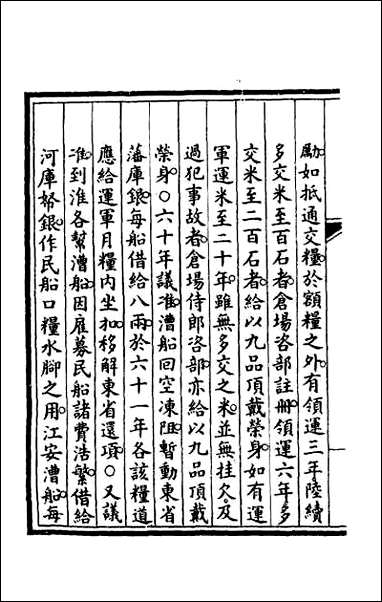 勵如抵通交糧於額糧之外有領運三年陸續
多交米至百石者倉場咨部註冊領運六年多
交米至二百石者給以九品頂戴榮身如有運
軍運米至二十年雖無多交之米並無挂欠及
過犯事故者倉場侍郎咨部亦給以九品頂戴
榮身○六十年議准漕船回空凍阻暫動東省
藩庫銀每船借給八兩於六十一年各該糧道
應給運軍月糧內坐扣移解東省還項○又議
准到淮各幫漕船因雇募民船諸費浩繁借給
河庫帑銀作民船口糧水腳之用江安漕船每